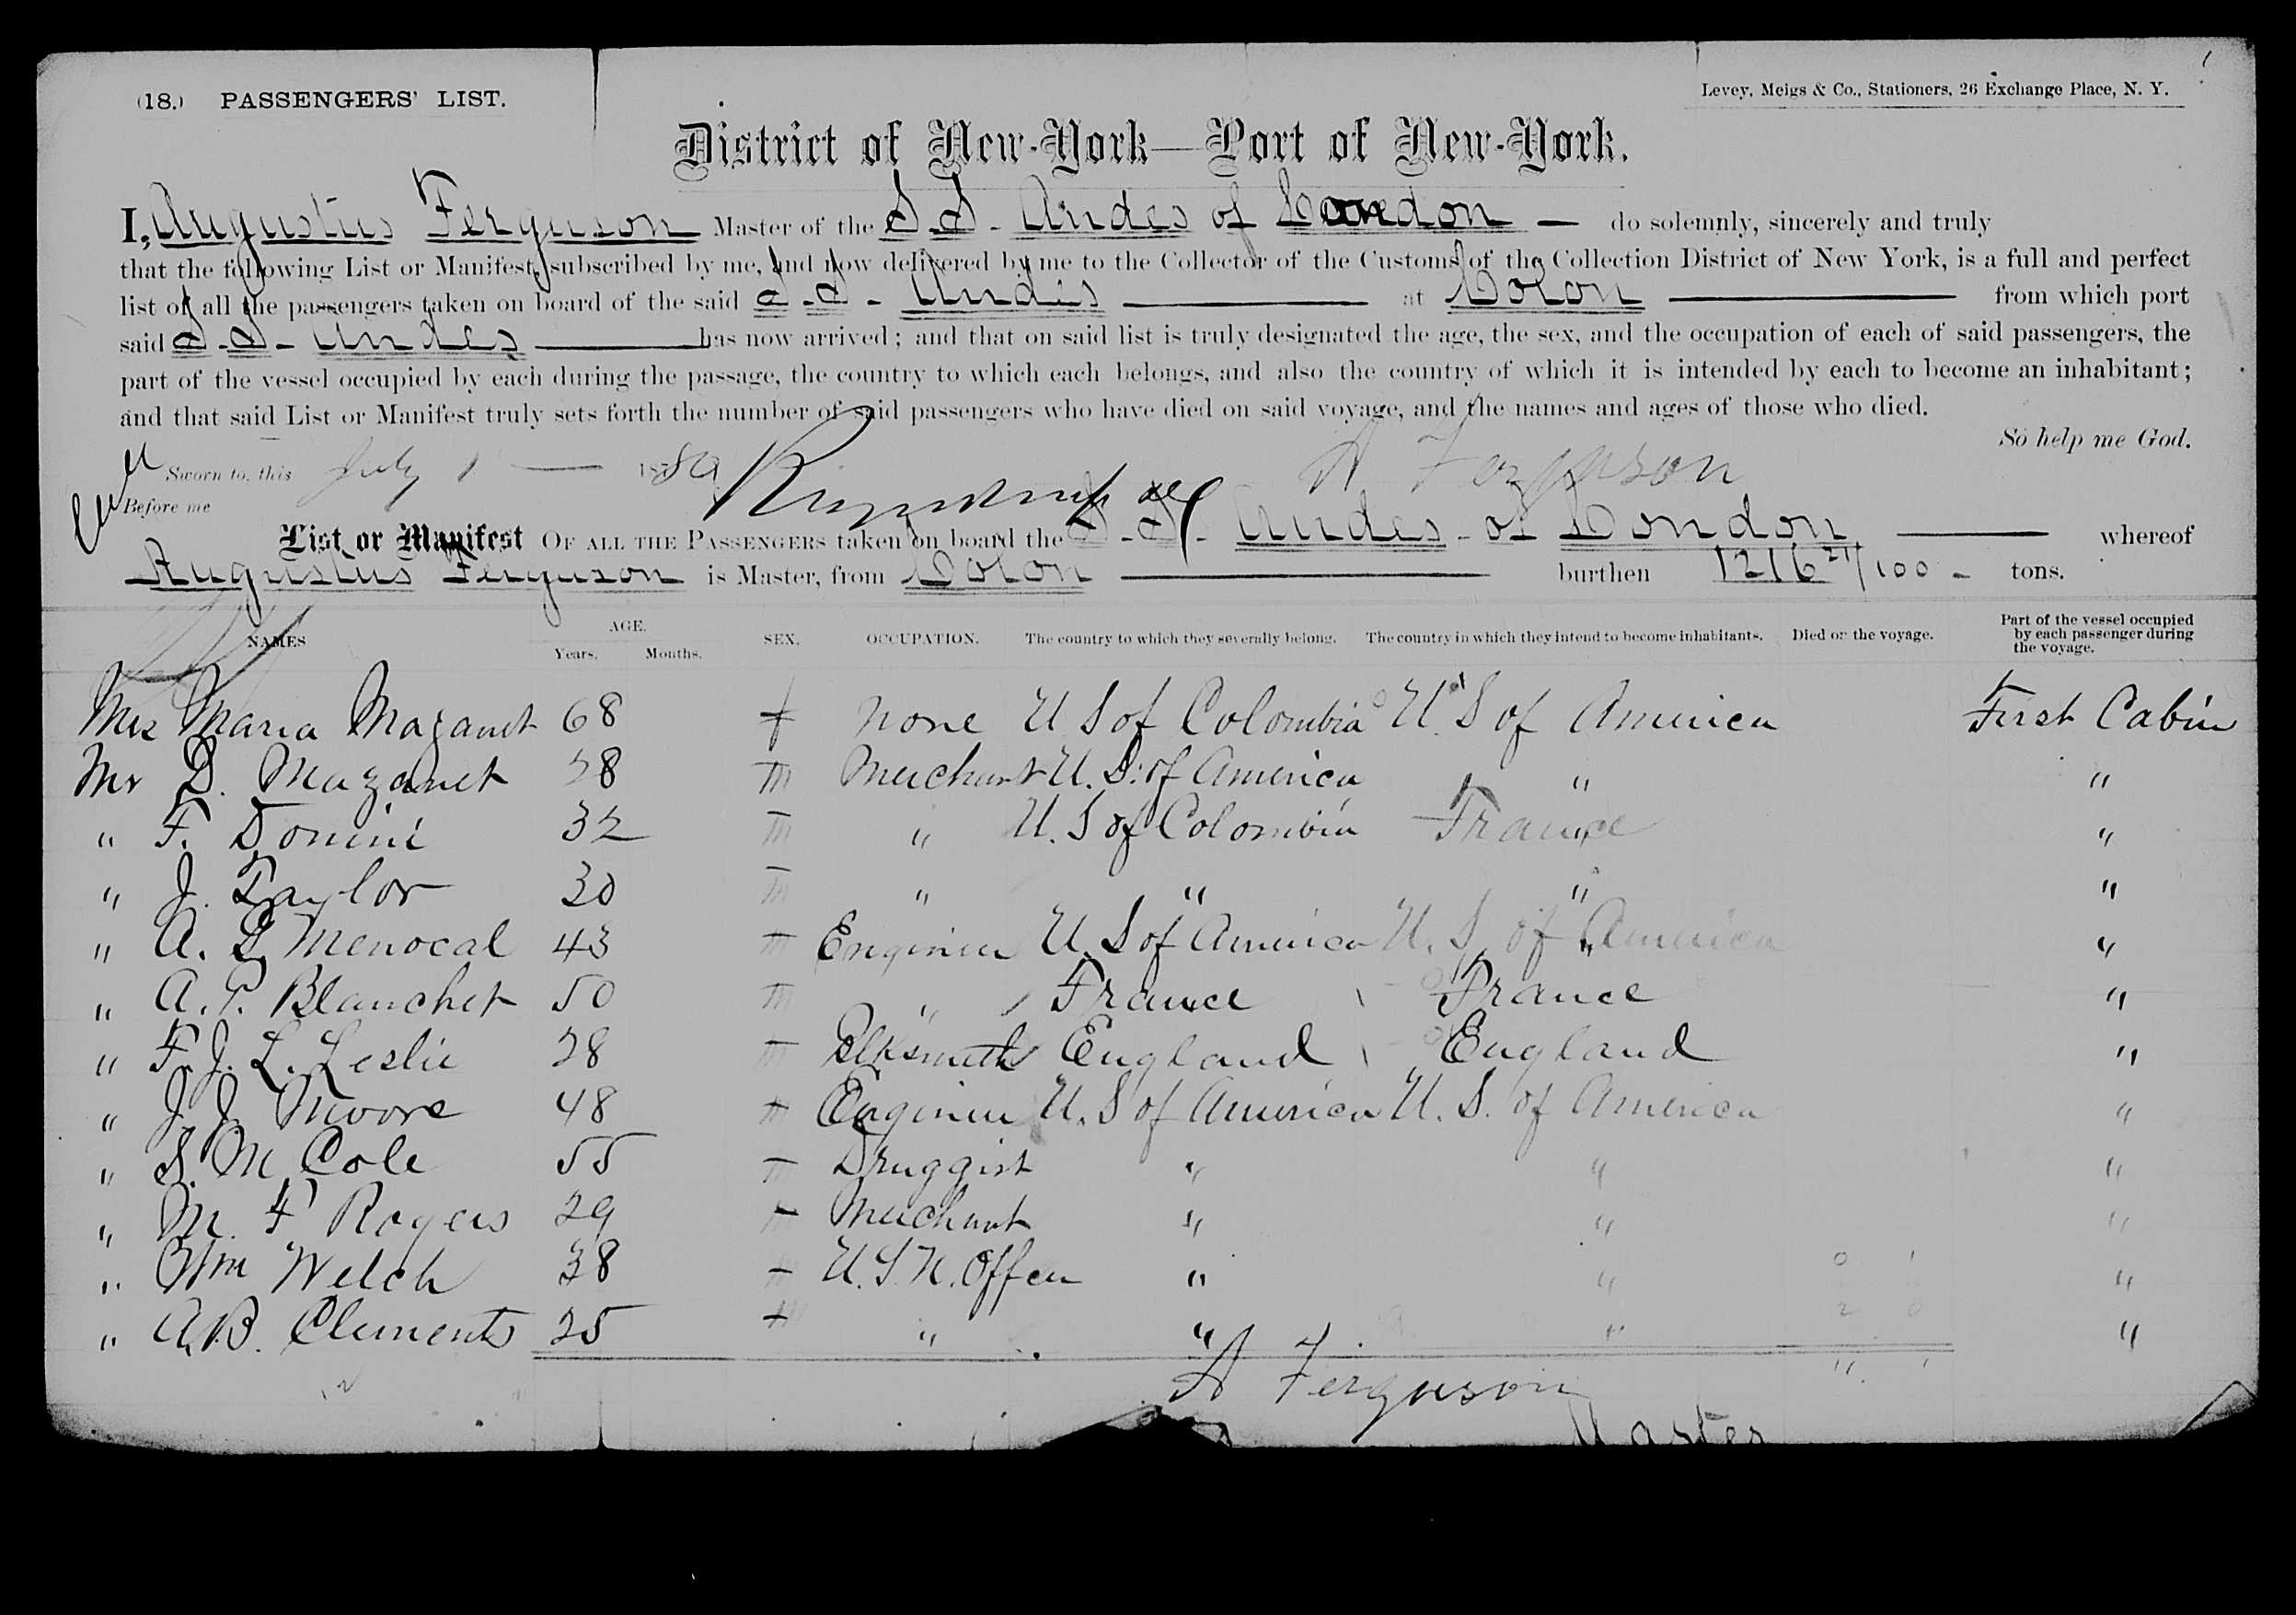 (18.) PASSENGERS' LIST.
Levey, Meigs & Co., Stationers, 26 Exchange Place, N. Y.
District of New-York—Port of New-York.
I, Augustus Ferguson Master of the S.S. Andes of London — do solemnly, sincerely and truly
that the following List or Manifest, subscribed by me, and now delivered by me to the Collector of the Customs of the Collection District of New York, is a full and perfect
list of all the passengers taken on board of the said S.S. Andes at Colon from which port
said S.S. Andes has now arrived; and that on said list is truly designated the age, the sex, and the occupation of each of said passengers, the
part of the vessel occupied by each during the passage, the country to which each belongs, and also the country of which it is intended by each to become an inhabitant;
and that said List or Manifest truly sets forth the number of said passengers who have died on said voyage, and the names and ages of those who died.
So help me God.
Sworn to, this July 1 — 18 A Ferguson
Before me
List or Manifest OF ALL THE PASSENGERS taken on board the S.S. Andes of London whereof
Augustus Ferguson is Master, from Colon burthen 1216 /100 - tons.
NAMES AGE. Years. Months. SEX. OCCUPATION. The country to which they severally belong. The country in which they intend to become inhabitants. Died on the voyage. Part of the vessel occupied by each passenger during the voyage.
Mrs Maria Mazanet 68 f none U S of Colombia U. S of America First Cabin
Mr D. Mazanet 28 m Merchant U. S. of America " "
" F. Domini 32 m " U. S of Colombia France "
" J. Taylor 30 m " " " "
" A. G Menocal 43 m Engineer U. S of America U. S. of America "
" A. P. Blanchet 50 m " France France "
" F. J. L. Leslie 28 m Blksmith England England "
" J. J. Moore 48 m Engineer U. S of America U. S. of America "
" S. M Cole 55 m Druggist " " "
" M. F Rogers 29 m Merchant " " "
" Wm Welch 38 m U. S. N. Officer " " "
" A. B. Clements 25 m " " " "
A Ferguson
Master